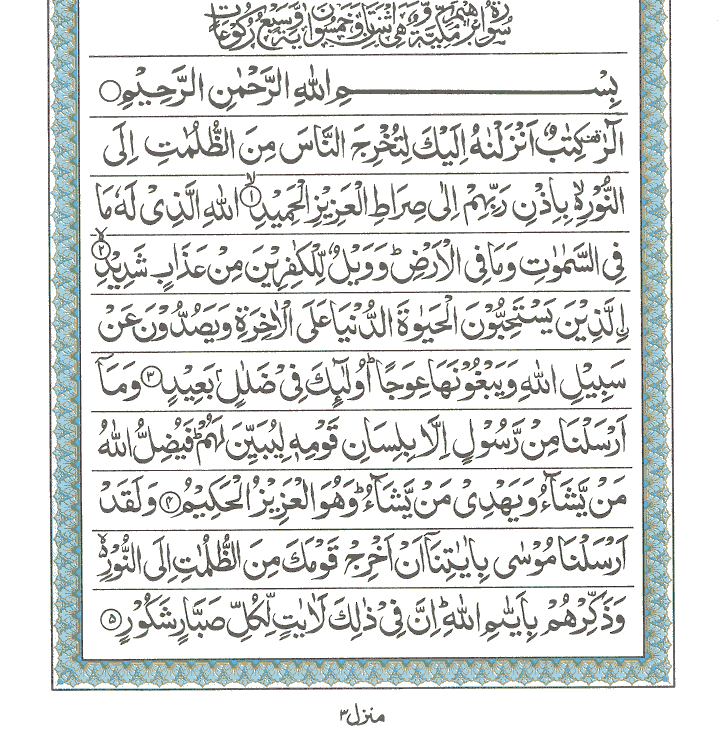 سُوْرَةُ اِبْرٰهِيْمَ مَكِّيَّةٌ وَّهِىَ اثْنَتَانِ وَخَمْسُوْنَ اٰيَةً وَّسَبْعُ رُكُوْعَاتٍ
بِسْمِ اللّٰهِ الرَّحْمٰنِ الرَّحِيْمِ ○
الٓرٰ قف كِتٰبٌ اَنْزَلْنٰهُ اِلَيْكَ لِتُخْرِجَ النَّاسَ مِنَ الظُّلُمٰتِ اِلَى
النُّوْرِ ۙ بِاِذْنِ رَبِّهِمْ اِلٰى صِرَاطِ الْعَزِيْزِ الْحَمِيْدِ ۙ﴿۱﴾ اللّٰهِ الَّذِىْ لَهٗ مَا
فِى السَّمٰوٰتِ وَمَا فِى الْاَرْضِ ؕ وَوَيْلٌ لِّلْكٰفِرِيْنَ مِنْ عَذَابٍ شَدِيْدِ ۙ﴿۲﴾
ۨالَّذِيْنَ يَسْتَحِبُّوْنَ الْحَيٰوةَ الدُّنْيَا عَلَى الْاٰخِرَةِ وَيَصُدُّوْنَ عَنْ
سَبِيْلِ اللّٰهِ وَيَبْغُوْنَهَا عِوَجًا ؕ اُولٰٓئِكَ فِىْ ضَلٰلٍۢ بَعِيْدٍ ﴿۳﴾ وَمَاۤ
اَرْسَلْنَا مِنْ رَّسُوْلٍ اِلَّا بِلِسَانِ قَوْمِهٖ لِيُبَيِّنَ لَهُمْ ؕ فَيُضِلُّ اللّٰهُ
مَنْ يَّشَآءُ وَيَهْدِىْ مَنْ يَّشَآءُ ؕ وَهُوَ الْعَزِيْزُ الْحَكِيْمُ ﴿۴﴾ وَلَقَدْ
اَرْسَلْنَا مُوْسٰى بِاٰيٰتِنَاۤ اَنْ اَخْرِجْ قَوْمَكَ مِنَ الظُّلُمٰتِ اِلَى النُّوْرِ ۙ
وَذَكِّرْهُمْ بِاَيّٰىمِ اللّٰهِ ؕ اِنَّ فِىْ ذٰلِكَ لَاٰيٰتٍ لِّكُلِّ صَبَّارٍ شَكُوْرٍ ﴿۵﴾
منزل ۳